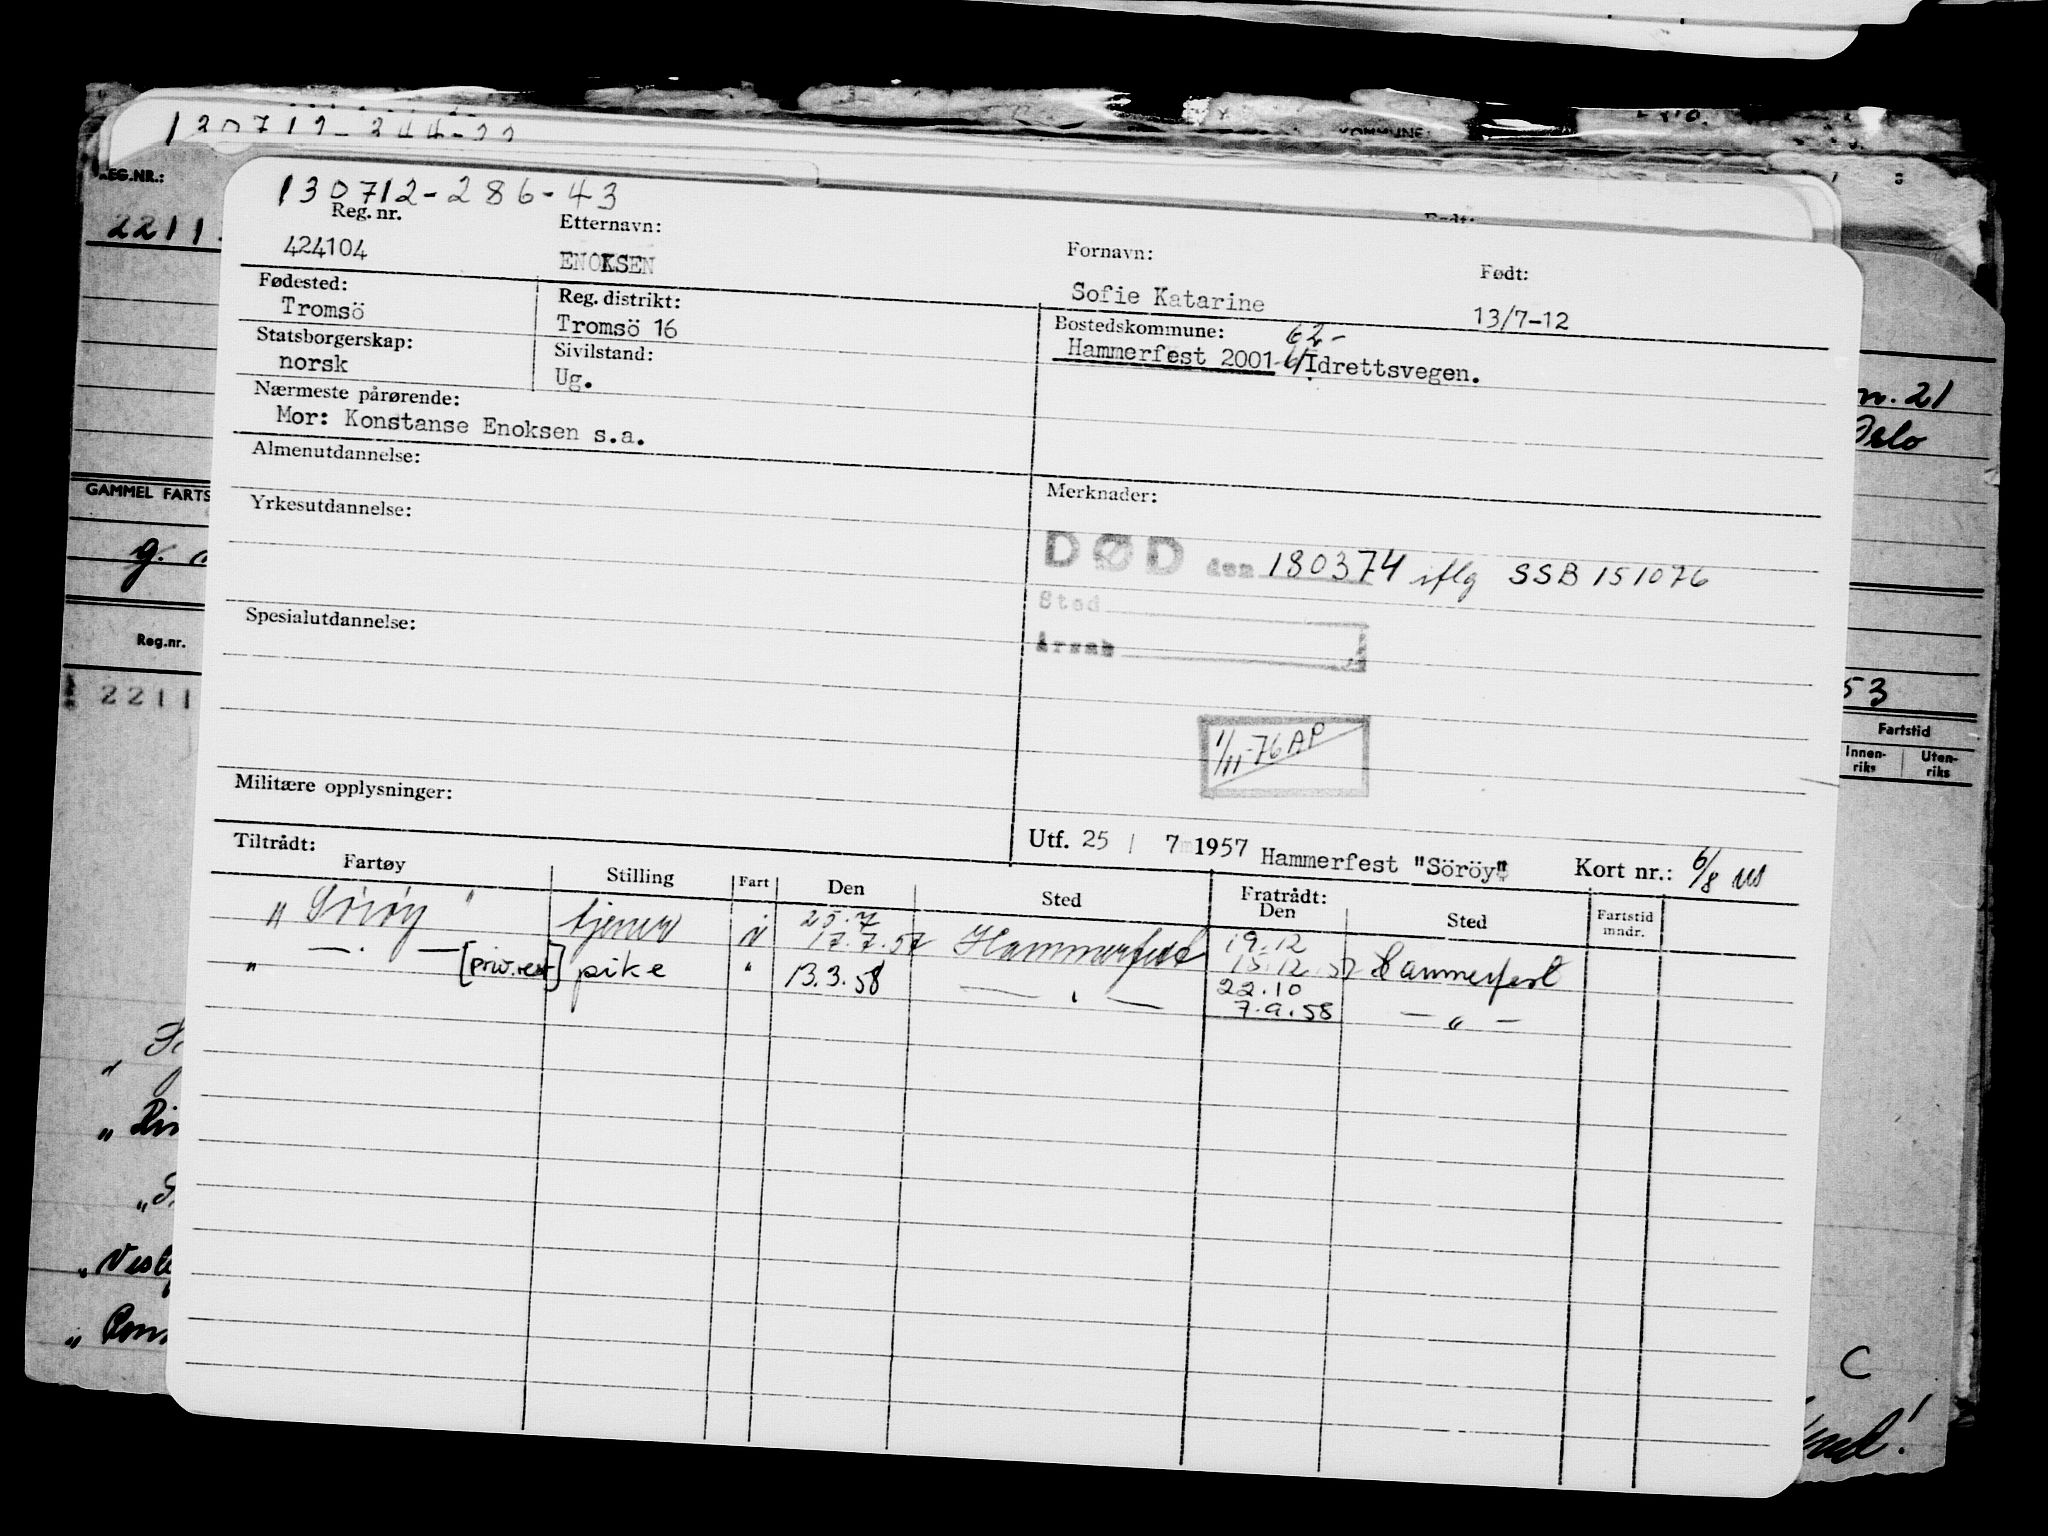 KOMMUNE:
120712-244-22
REG.NR.:
Født:
2211
130712-286-43
Reg. nr. Etternavn: Fornavn: Født:
424104 ENOKSEN Sofie Katarine 13/7-12
Fødested: Reg. distrikt: Bostedskommune: 62-
Tromsö Tromsö 16 Hammerfest 2001-6/Idrettsvegen.
Statsborgerskap: Sivilstand:
norsk Ug.
Nærmeste pårørende:
Mor: Konstanse Enoksen s.a.
m. 21
Oslo
Almenutdannelse: Merknader:
GAMMEL FARTS
Yrkesutdannelse:
DØD den 180374 iflg SSB 151076
Sted
Årsak
Spesialutdannelse:
Reg.nr.
2211
53
Fartstid
Innen-riks Uten-riks
1/11-76 AP
Militære opplysninger:
Utf. 25 / 7 1957 Hammerfest "Söröy" Kort nr.: 6/8
Tiltrådt: Fratrådt:
Fartøy Stilling Fart Den Sted Den Sted Fartstid mndr.
25.7 19.12
" Söröy " tjener i 17.7.57 Hammerfest 15.12.57 Hammerfest
22.10
" — . — [priv.rest] pike " 13.3.58 — . — 7.9.58 — " —
C